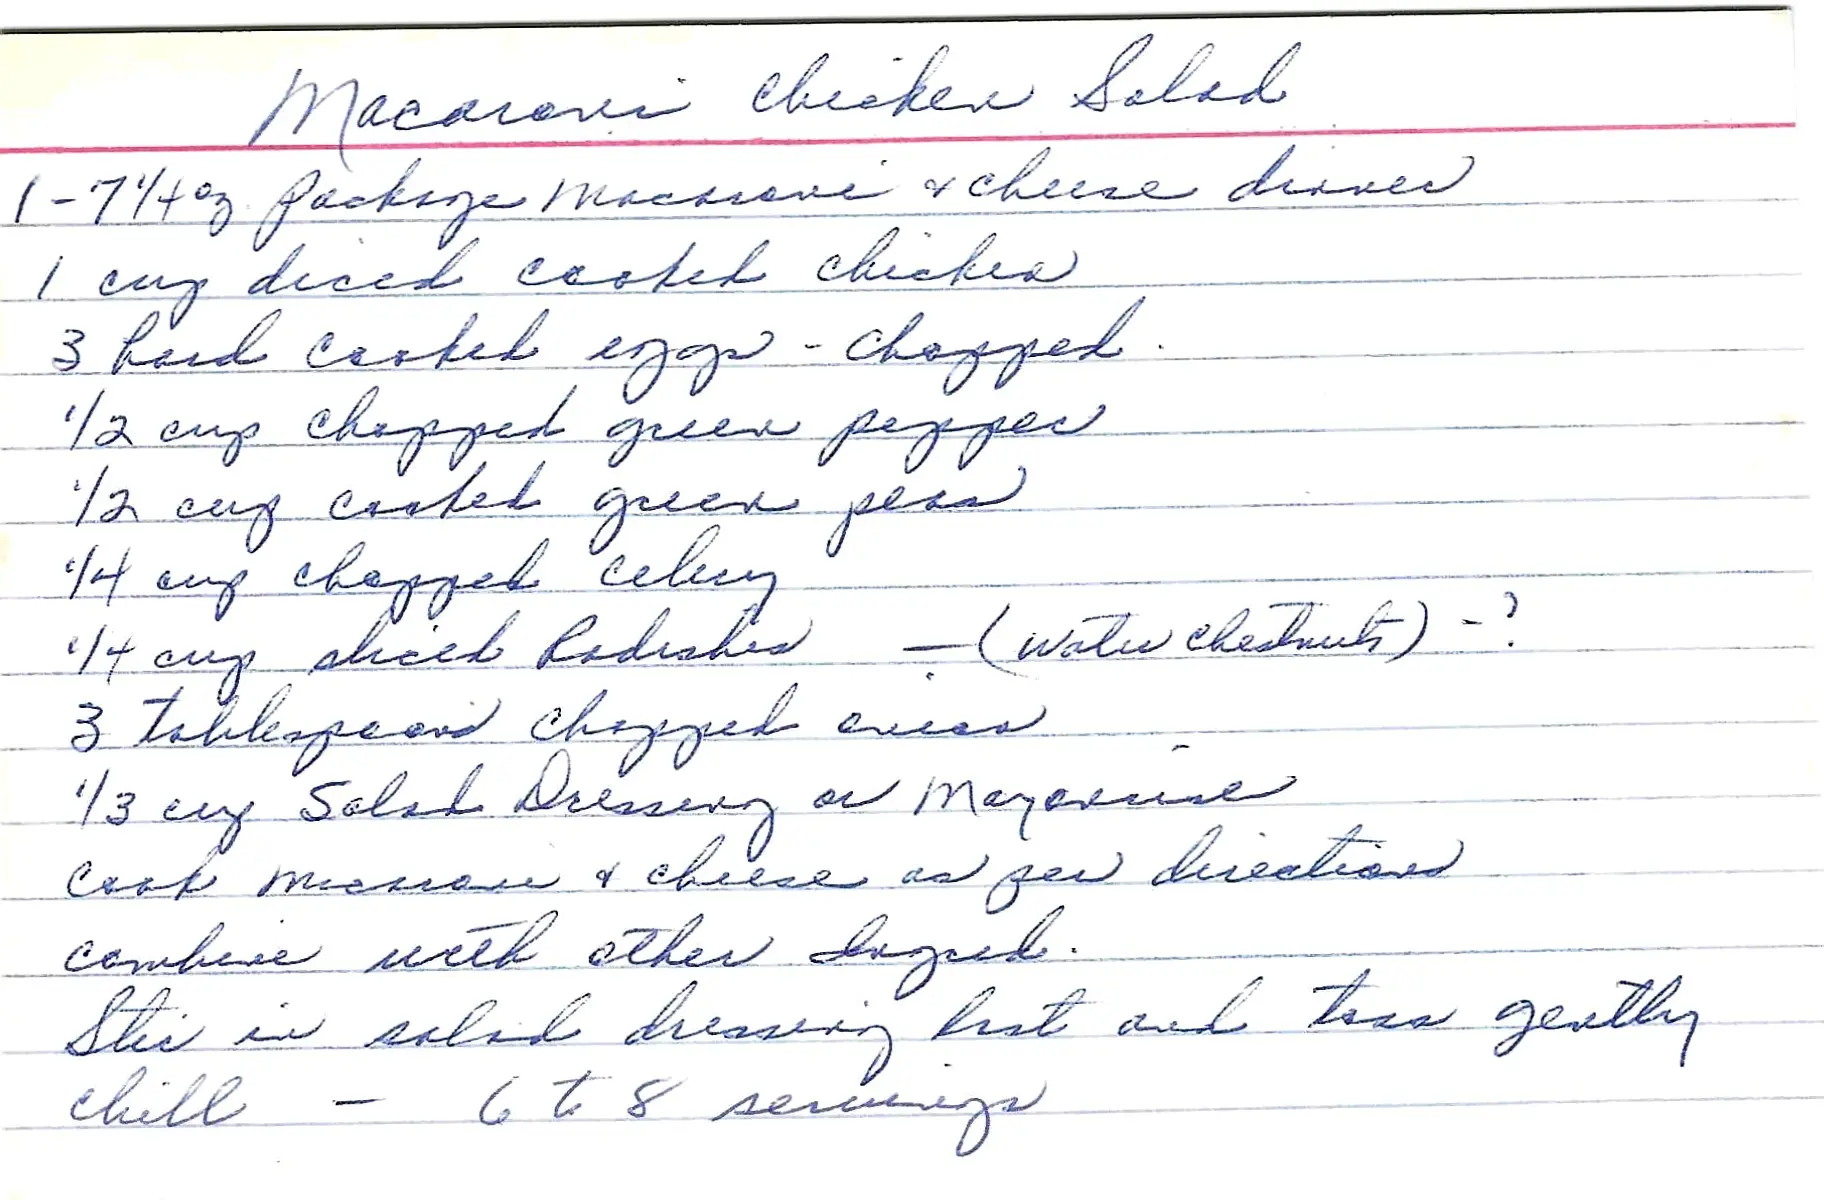 Macaroni Chicken Salad
1 - 7 1/4 oz. Package Macaroni & cheese dinner
1 cup diced cooked chicken
3 hard cooked eggs - chopped.
1/2 cup chopped green pepper
1/2 cup cooked green peas
1/4 cup chopped celery
1/4 cup sliced Radishes — (water chestnuts) - ?
3 tablespoons chopped onion
1/3 cup Salad Dressing or Mayonaise
Cook macaroni & cheese as per directions
combine with other Ingred.
Stir in salad dressing last and toss gently
chill — 6 to 8 servings